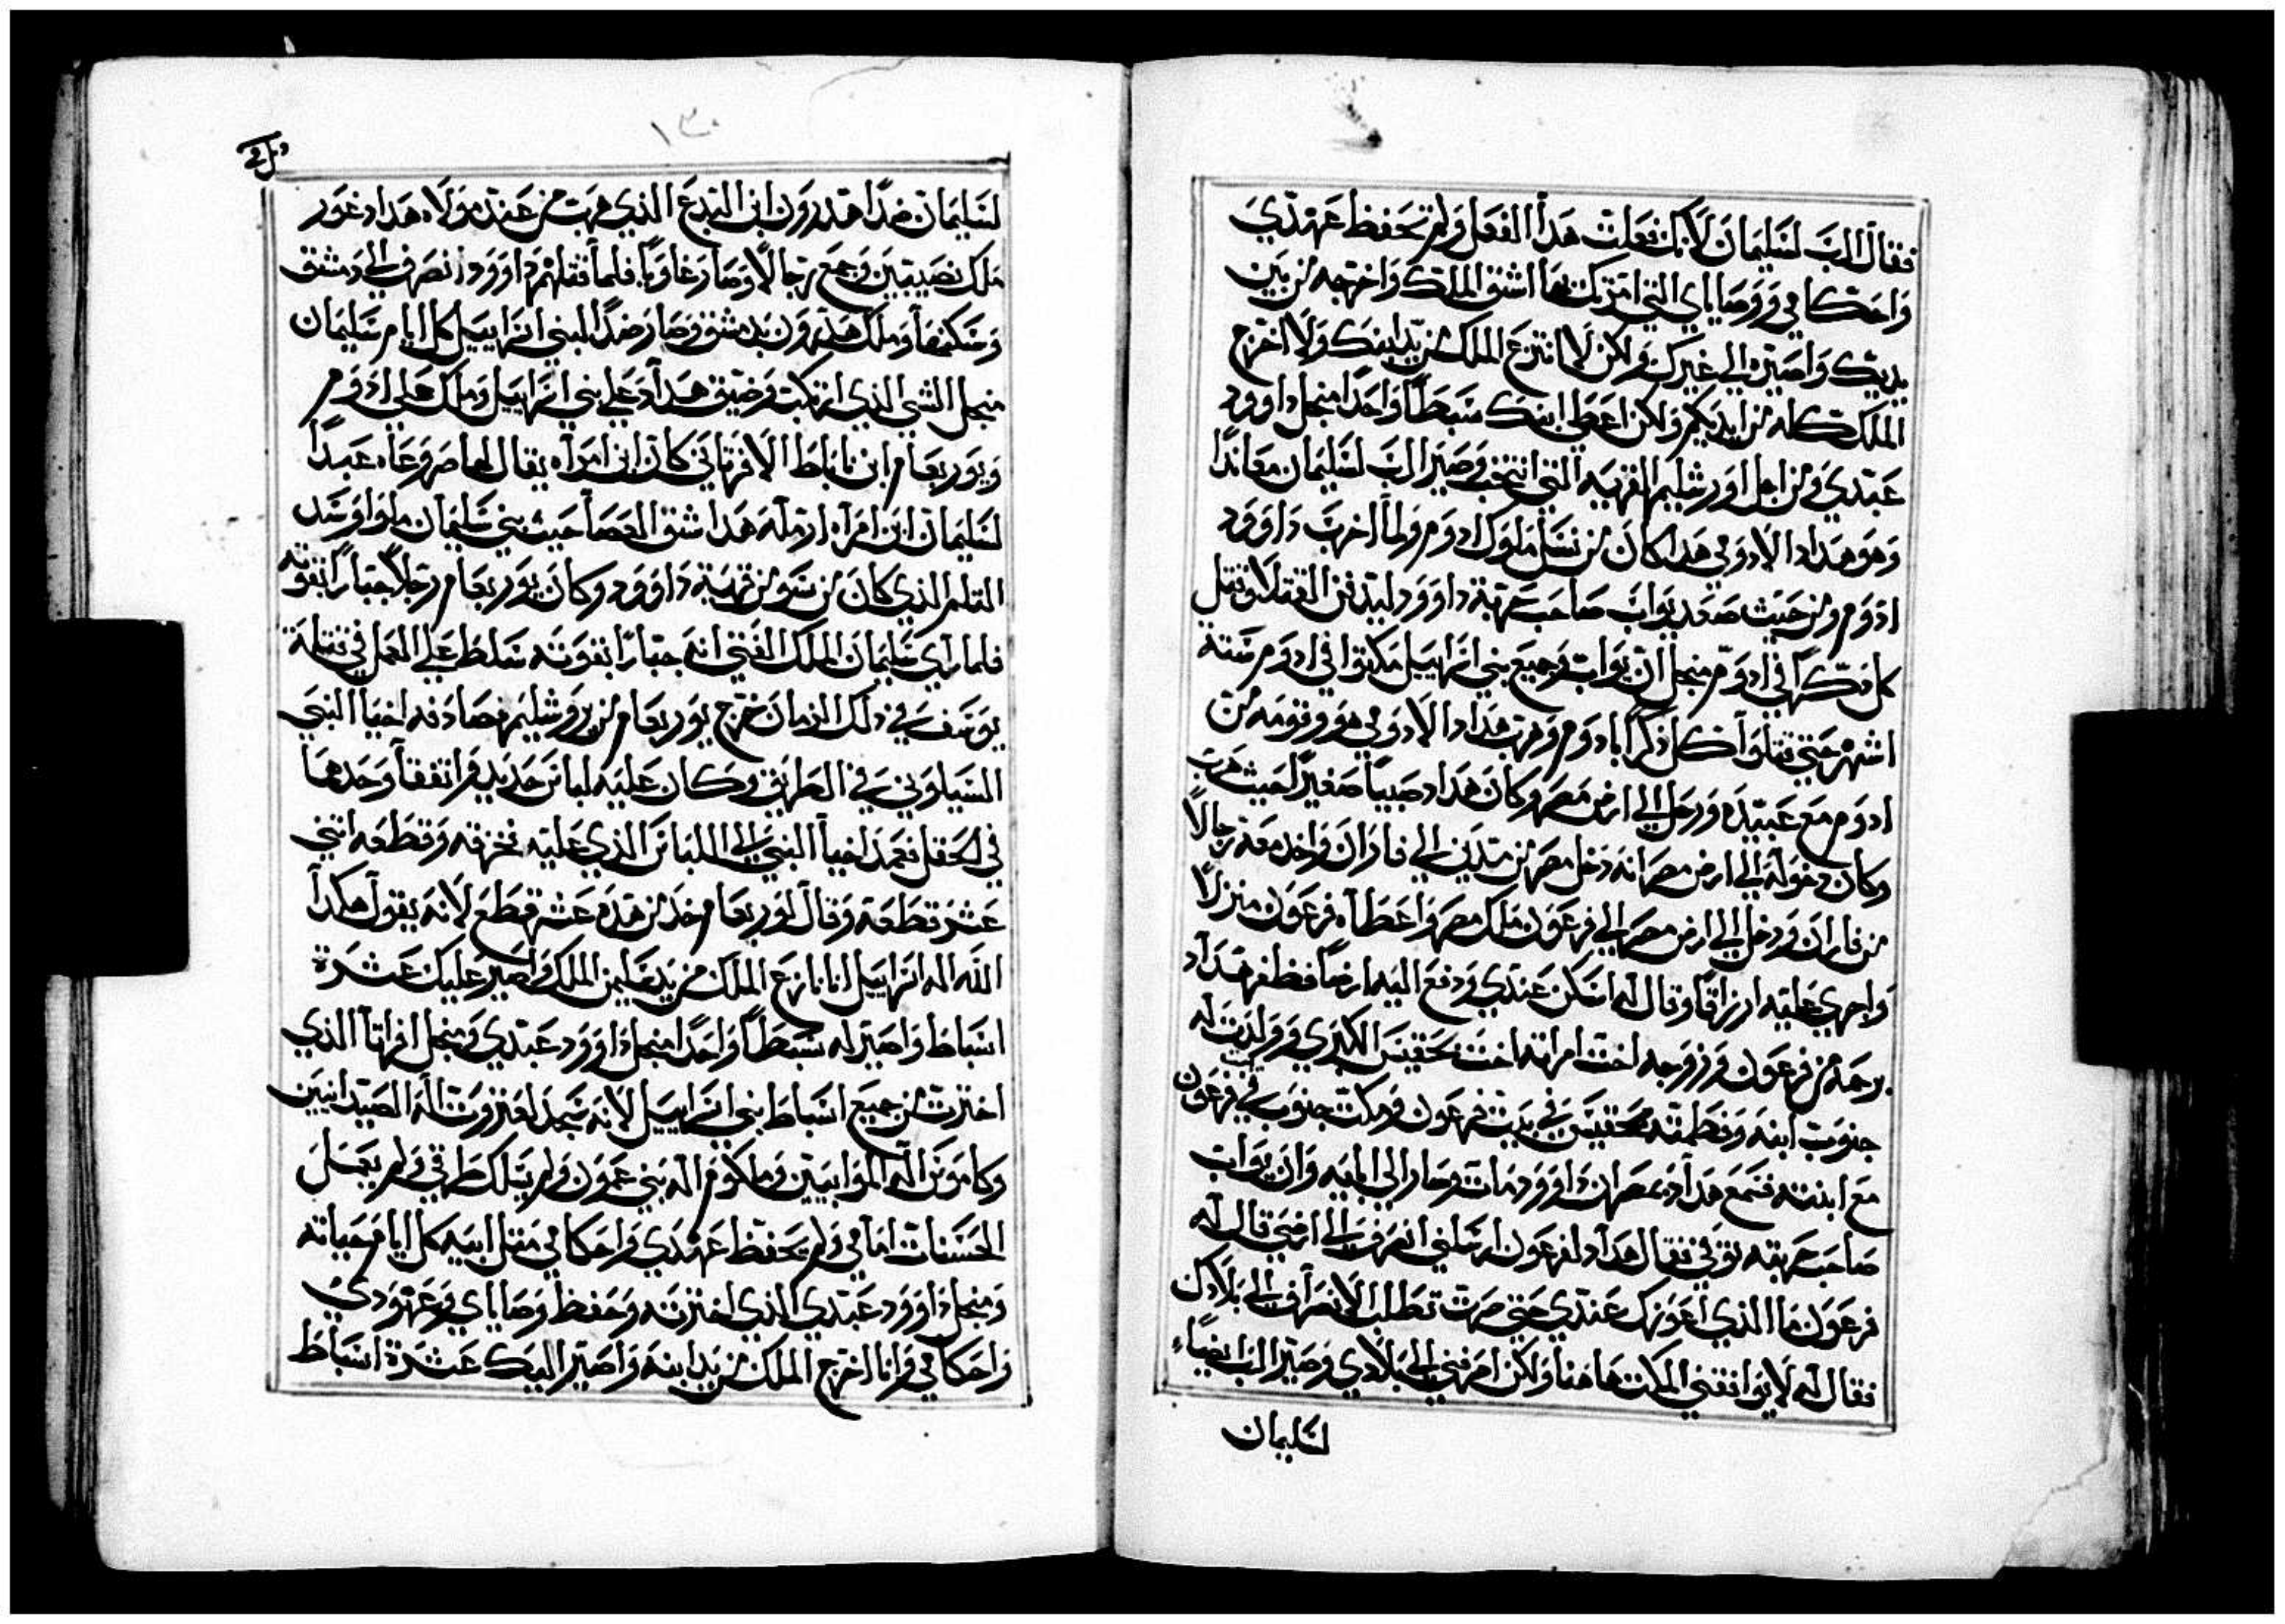 فقال الرب لسليمان لانك فعلت هدا الفعل ولم تحفظ عهدي
واحكامي ووصاياي التي امرتك بها اشق الملك واخرجه من بين
يديك واصيره الي غيرك ولكن لا انتزع الملك من يد ابنك ولا اخرج
الملك كله من ايديكم ولكن اعطي ابنك سبطا واحدا منجل داوود
عبدي ومن اجل اورشليم القريه التي انتخبت وصير الرب لسليمان معاندا
وهو هداد الادومي هدا كان من نسل ملوك ادوم ولما اخرب داوود
ادوم ومن حيث صعد يواب صاحب حربة داوود ليدفن القتلا وقتل
كل دكرا في ادوم منجل ان يواب وجميع بني اسراييل مكتوا في ادوم ستة
اشهر حتي قتلوا كل دكرا بادوم وهرب هداد الادومي هو وقومه من
ادوم مع عبيده ورحل الي ارض مصر وكان هداد صبيا صغيرا حيث هرب
وكان دخوله الي ارض مصر انه دخل مصر من مدين الي فاران واخد معه رجالا
من فاران ودخل الي ارض مصر الي فرعون ملك مصر واعطاه فرعون منزلا
واجري عليه ارزاقا وقال له اسكن عندي ودفع اليه ارضا فظفر هداد
برحمة من فرعون وزوجه اخت امراته اخت تحقنيس الكبري وولدت له
جنوبت ابنه وفطمته تحقنيس في بيت فرعون ومكت جنوبت في بيت فرعون
مع ابنته فسمع هداد بمصر ان داوود مات وصار الي ابايه وان يواب
صاحب حربته توفي فقال هداد لفرعون ارسلني انصرف الي ارضي قال له
فرعون ما الدي اعوزك عندي حتي صرت تطلب الانصراف الي بلادك
فقال له لا يوافقني المكت هاهنا ولكن اصرفني الي بلادي وصير الرب ايضا
لسليمان
١٣٠
لسليمان ضدا هدرون ابن اليدع الدي هرب من عند مولاه هدادعور
ملك نصيبين وجمع رجالا وصار غاويا فلما قتلهم داوود انصرف الي دمشق
وسكنها وملك هدرون بدمشق وصار ضدا لبني اسراييل كل ايام سليمان
منجل الشي الدي ارتكب وضيق هداد علي بني اسراييل وملك علي ادوم
ويوربعام ابن ناباط الافراتي كان ابن امراه يقال لها صروعاه عبدا
لسليمان ابن امراه ارمله هدا شق العصا حيث بني سليمان ملوا وسد
التلم الدي كان من سور قرية داوود وكان يوربعام رجلا جبارا بقوته
فلما راي سليمان الملك الفتي انه جبارا بقوته سلطه علي العمل في قبيلة
يوسف في دلك الزمان خرج يوربعام من يروشليم فصادفه اخيا النبي
السيلوني في الطريق وكان عليه لباس جديد فراتفقا وحدهما
في الحقل فعمد اخيا النبي الي اللباس الدي عليه فخرقه وقطعه اتني
عشر قطعه وقال ليوربعام خد من هده عشر قطع لانه يقول هكدا
الله اله اسراييل انا نازع الملك من يد سليمان الملك واصير عليك عشرة
اسباط واصير له سبطا واحدا منجل داوود عبدي ومنجل القرية الدي
اخترت من جميع اسباط بني اسراييل لانه سجد لعنزروت اله الصيدانيين
وكاموس اله الموابيين وملكوم اله بني عمون ولم يسلك طرقي ولم يعمل
الحسنات امامي ولم يحفظ عهدي واحكامي متل ابيه كل ايام حياته
ومنجل داوود عبدي الدي اخترته وحفظ وصاياي وعهودي
واحكامي وانا اخرج الملك من يد ابنه واصير اليك عشرة اسباط